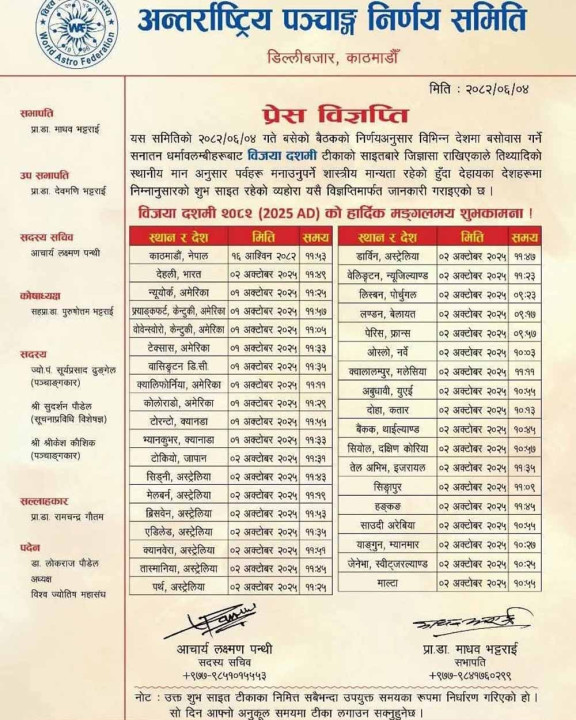 World Astro Federation
WAF
अन्तर्राष्ट्रिय पञ्चाङ्ग निर्णय समिति
डिल्लीबजार, काठमाडौँ
मिति : २०८२/०६/०४
प्रेस विज्ञप्ति
यस समितिको २०८२/०६/०४ गते बसेको बैठकको निर्णयअनुसार विभिन्न देशमा बसोवास गर्ने
सनातन धर्मावलम्बीहरूबाट विजया दशमी टीकाको साइतबारे जिज्ञासा राखिएकाले तिथ्यादिको
स्थानीय मान अनुसार पर्वहरू मनाउनुपर्ने शास्त्रीय मान्यता रहेको हुँदा देहायका देशहरूमा
निम्नानुसारको शुभ साइत रहेको व्यहोरा यसै विज्ञप्तिमार्फत जानकारी गराइएको छ ।
विजया दशमी २०८२ (2025 AD) को हार्दिक मङ्गलमय शुभकामना !
सभापति
प्रा.डा. माधव भट्टराई
उप सभापति
प्रा.डा. देवमणि भट्टराई
सदस्य सचिव
आचार्य लक्ष्मण पन्थी
कोषाध्यक्ष
सहप्रा.डा. पुरुषोतम भट्टराई
सदस्य
ज्यो.पं. सूर्यप्रसाद ढुङ्गेल
(पञ्चाङ्गकार)
श्री सुदर्शन पौडेल
(सूचनाप्रविधि विशेषज्ञ)
श्री श्रीकेश कौशिक
(पञ्चाङ्गकार)
सल्लाहकार
प्रा.डा. रामचन्द्र गौतम
पदेन
डा. लोकराज पौडेल
अध्यक्ष
विश्व ज्योतिष महासंघ
स्थान र देश मिति समय
काठमाडौं, नेपाल १६ आश्विन २०८२ ११:५३
देहली, भारत ०२ अक्टोबर २०२५ ११:४९
न्यूयोर्क, अमेरिका ०१ अक्टोबर २०२५ ११:२५
फ्र्याङ्कफर्ट, केन्टुकी, अमेरिका ०१ अक्टोबर २०२५ ११:५७
वोवेन्स्वोरो, केन्टुकी, अमेरिका ०१ अक्टोबर २०२५ ११:०५
टेक्सास, अमेरिका ०१ अक्टोबर २०२५ ११:३३
वासिङ्टन डि.सी. ०१ अक्टोबर २०२५ ११:३५
क्यालिफोर्निया, अमेरिका ०१ अक्टोबर २०२५ ११:११
कोलोराडो, अमेरिका ०१ अक्टोबर २०२५ ११:२९
टोरन्टो, क्यानडा ०१ अक्टोबर २०२५ ११:५५
भ्यानकुभर, क्यानाडा ०१ अक्टोबर २०२५ ११:३३
टोकियो, जापान ०२ अक्टोबर २०२५ ११:३१
सिड्नी, अस्ट्रेलिया ०२ अक्टोबर २०२५ ११:४३
मेलबर्न, अस्ट्रेलिया ०२ अक्टोबर २०२५ ११:१९
ब्रिसवेन, अस्ट्रेलिया ०२ अक्टोबर २०२५ ११:५३
एडिलेड, अस्ट्रेलिया ०२ अक्टोबर २०२५ ११:३५
क्यानवेरा, अस्ट्रेलिया ०२ अक्टोबर २०२५ ११:५१
तास्मानिया, अस्ट्रेलिया ०२ अक्टोबर २०२५ ११:४५
पर्थ, अस्ट्रेलिया ०२ अक्टोबर २०२५ ११:२५
स्थान र देश मिति समय
डार्विन, अस्ट्रेलिया ०२ अक्टोबर २०२५ ११:४७
वेलिङ्टन, न्यूजिल्याण्ड ०२ अक्टोबर २०२५ ११:२३
लिस्बन, पोर्चुगल ०२ अक्टोबर २०२५ ०९:२३
लण्डन, बेलायत ०२ अक्टोबर २०२५ ०९:१७
पेरिस, फ्रान्स ०२ अक्टोबर २०२५ ०९:५७
ओस्लो, नर्वे ०२ अक्टोबर २०२५ १०:०३
क्वालालम्पुर, मलेसिया ०२ अक्टोबर २०२५ ११:११
अबुधावी, युएई ०२ अक्टोबर २०२५ १०:५५
दोहा, कतार ०२ अक्टोबर २०२५ १०:१३
बैकक, थाईल्याण्ड ०२ अक्टोबर २०२५ १०:४५
सियोल, दक्षिण कोरिया ०२ अक्टोबर २०२५ १०:५७
तेल अभिभ, इजरायल ०२ अक्टोबर २०२५ ११:३५
सिङ्गापुर ०२ अक्टोबर २०२५ ११:०९
हङकङ ०२ अक्टोबर २०२५ ११:४५
साउदी अरेबिया ०२ अक्टोबर २०२५ १०:५५
याङ्गुन, म्यानमार ०२ अक्टोबर २०२५ १०:२७
जेनेभा, स्वीट्जरल्याण्ड ०२ अक्टोबर २०२५ १०:२५
माल्टा ०२ अक्टोबर २०२५ १०:५५
आचार्य लक्ष्मण पन्थी
सदस्य सचिव
+९७७-९८५१०१५५५३
प्रा.डा. माधव भट्टराई
सभापति
+९७७-९८४१७६०२९९
नोट : उक्त शुभ साइत टीकाका निमित्त सबैभन्दा उपयुक्त समयका रूपमा निर्धारण गरिएको हो ।
सो दिन आफ्नो अनुकूल समयमा टीका लगाउन सक्नुहुनेछ ।